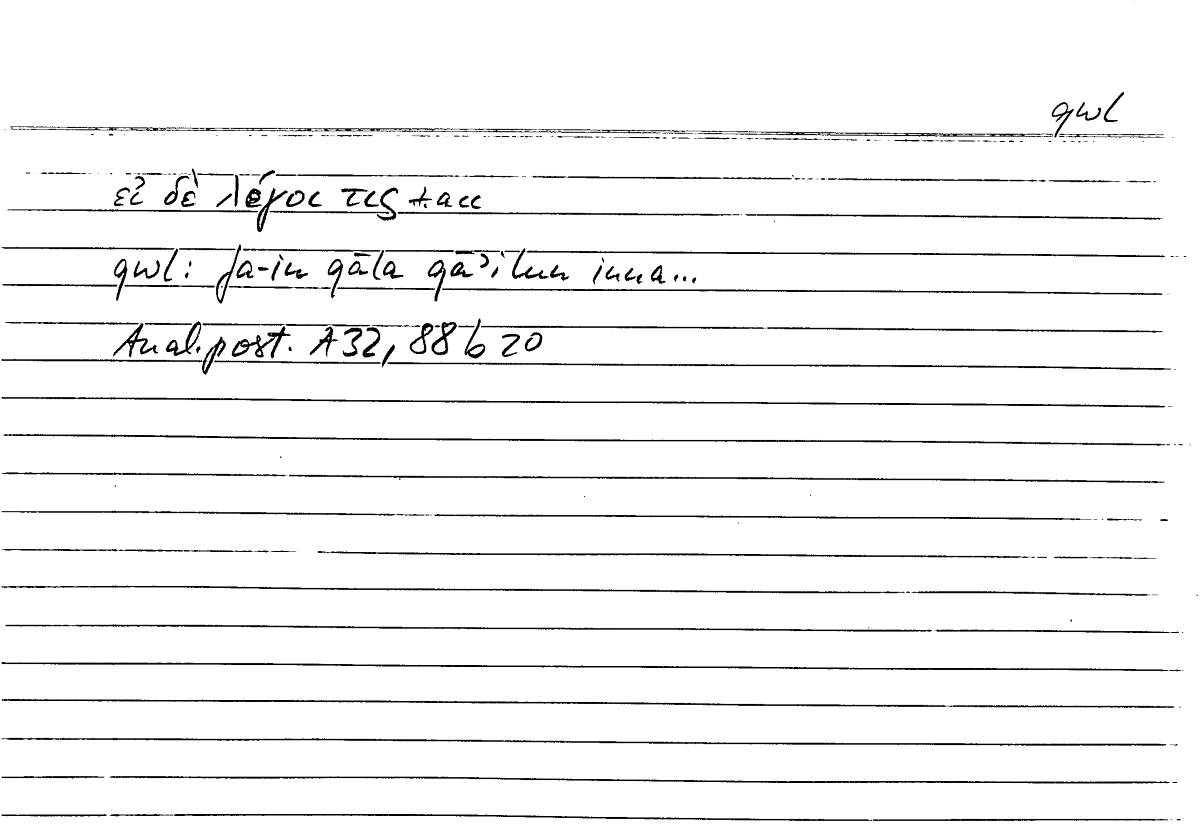 qwl
εἰ δὲ λέγοι τις +acc
qwl: fa-in qāla qāʾilun inna...
Anal. post. A32, 88 b 20